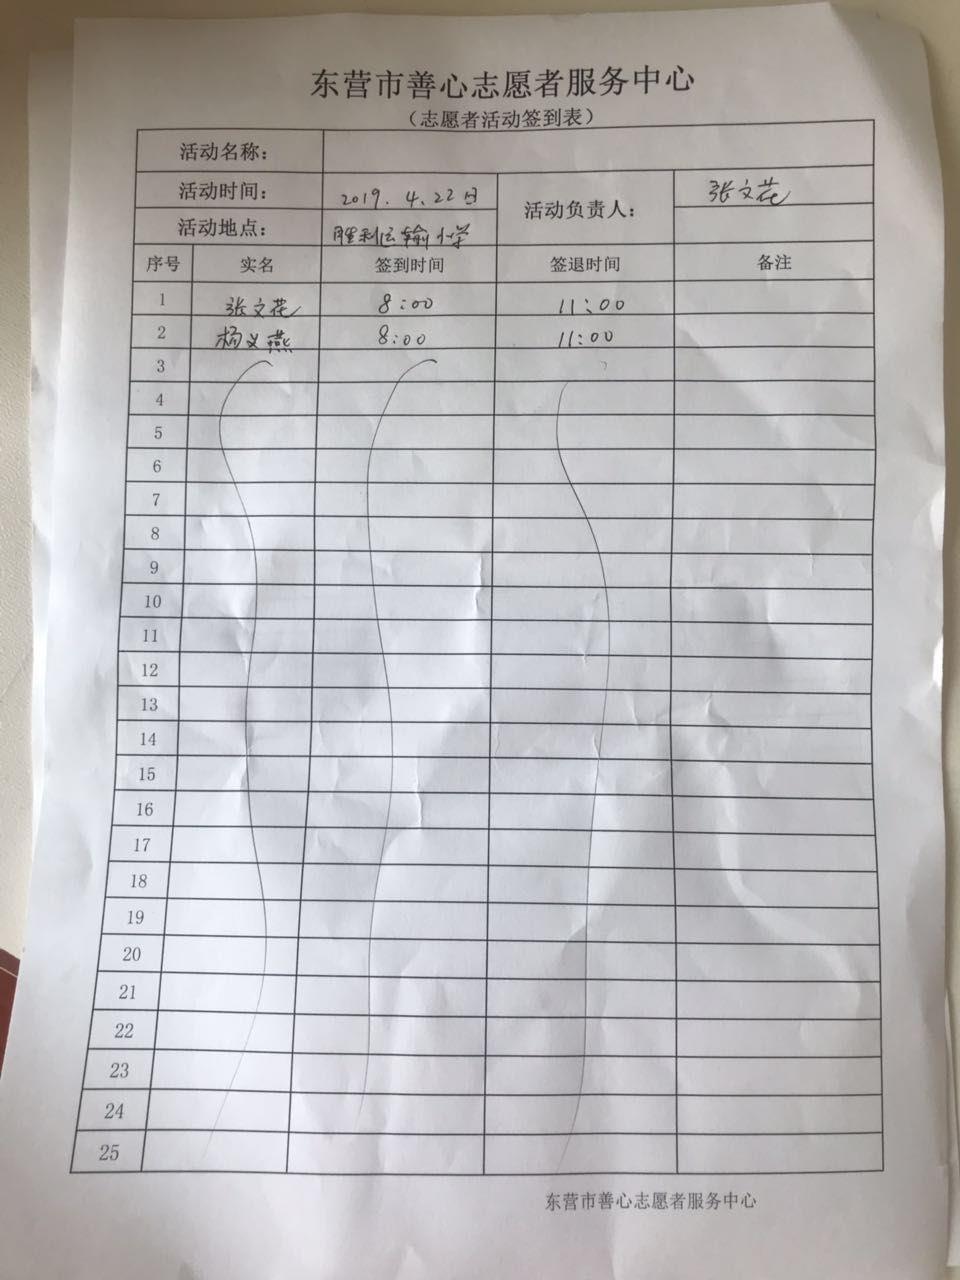 东营市善心志愿者服务中心
（志愿者活动签到表）
活动名称：
活动时间： 2019.4.22日 活动负责人： 张文花
活动地点： 胜利运输小学
序号 实名 签到时间 签退时间 备注
1 张文花 8:00 11:00
2 杨义燕 8:00 11:00
3
4
5
6
7
8
9
10
11
12
13
14
15
16
17
18
19
20
21
22
23
24
25
东营市善心志愿者服务中心